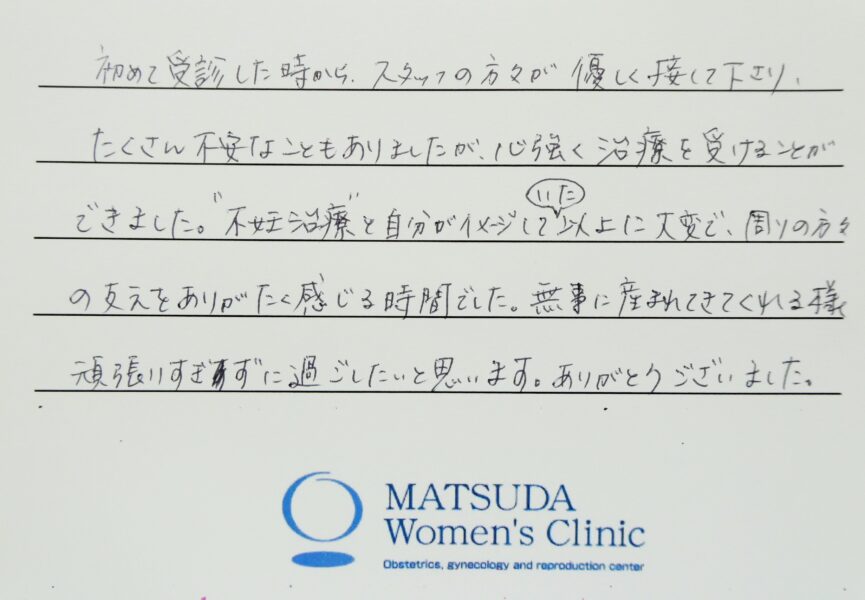 初めて受診した時から、スタッフの方々が優しく接して下さり、
たくさん不安なこともありましたが、心強く治療を受けることが
できました。"不妊治療"と自分がイメージしていた以上に大変で、周りの方々
の支えをありがたく感じる時間でした。無事に産まれてきてくれる様
頑張りすぎずに過ごしたいと思います。ありがとうございました。
MATSUDA
Women's Clinic
Obstetrics, gynecology and reproduction center